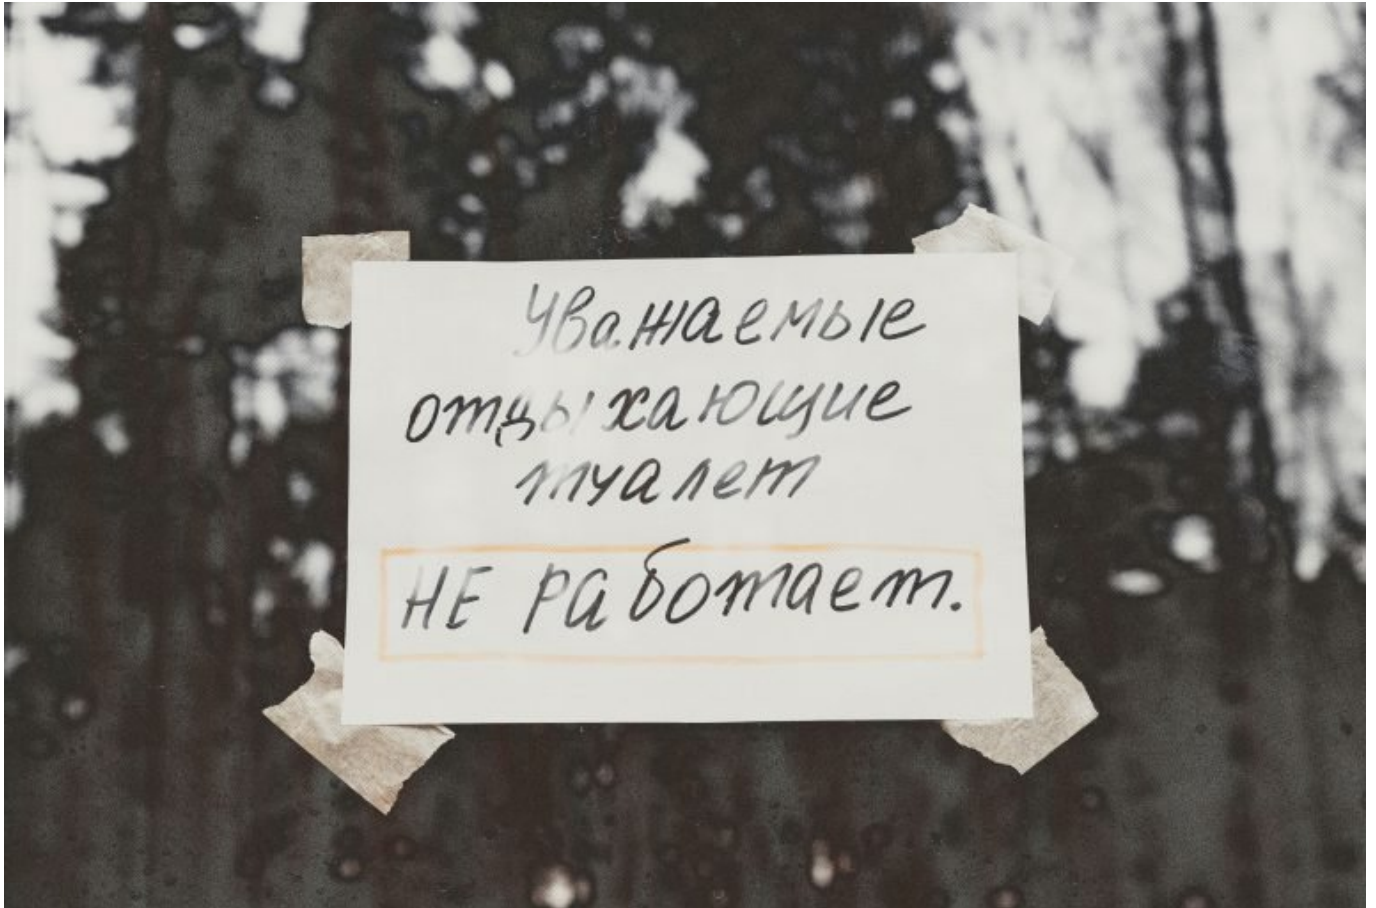 Уважаемые
отдыхающие
туалет
НЕ РАботает.